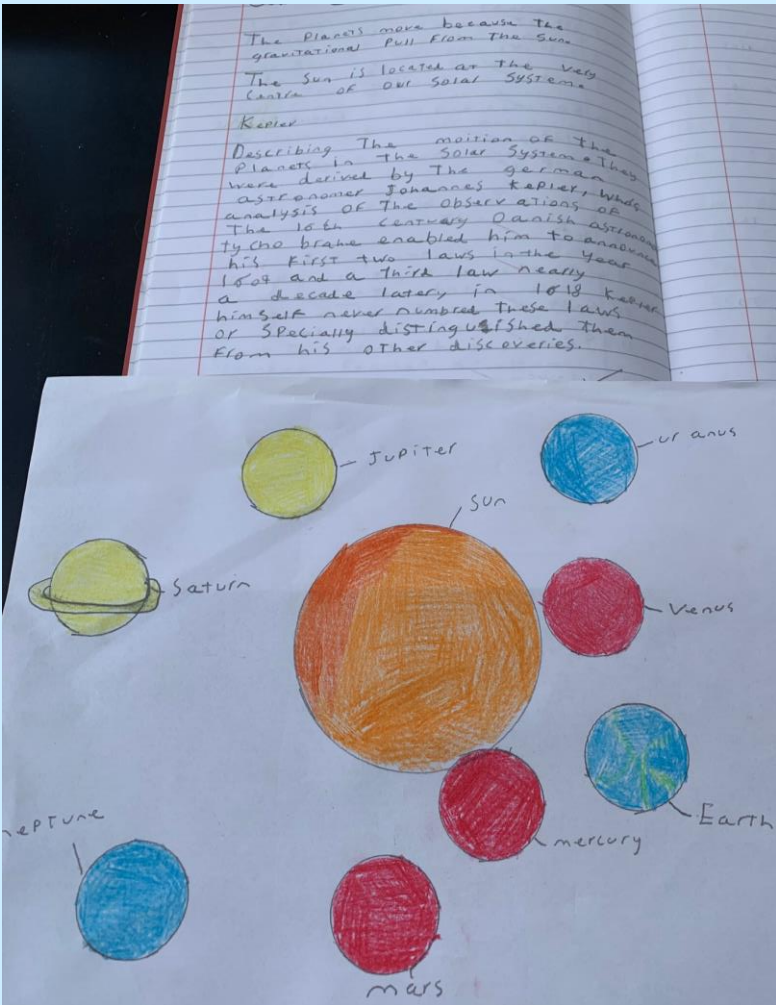 The Planets move because the
gravitational Pull From The Sun.
The Sun is located at the very
Centre of our Solar System.
Kepler
Describing The moition of the
Planets in The Solar System. They
were derived by The german
astronomer Johannes Kepler, whos
analysis of The observations of
The 16th centuary Danish astronome
tycho brahe enabled him to announce
his First two laws in the year
1609 and a Third law nearly
a decade later, in 1618 Kepler
himself never numbred These laws
or Specially distinguished them
From his other discoveries.
Jupiter
uranus
Sun
Saturn
Venus
Earth
neptune
mercury
mars